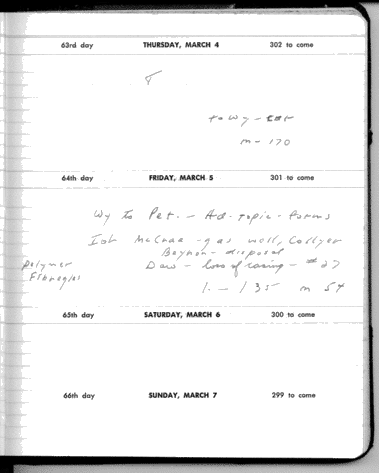 63rd day THURSDAY, MARCH 4 302 to come
to Wy - car
m - 170
64th day FRIDAY, MARCH 5 301 to come
Wy to Pet. - Ad - topic - forms
McCrae - gas well, Collyer
Beynon - disposal
Polymer Daw - loss of casing - #27
Fibreglas
1. - 135 m 54
65th day SATURDAY, MARCH 6 300 to come
66th day SUNDAY, MARCH 7 299 to come